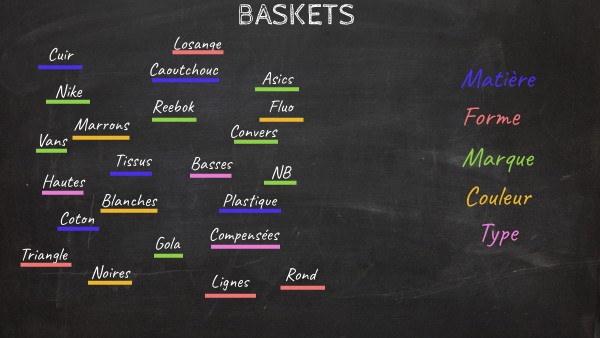 BASKETS
Losange
Cuir
Caoutchouc
Asics
Nike
Reebok
Fluo
Marrons
Convers
Vans
Tissus
Basses
NB
Hautes
Blanches
Plastique
Coton
Gola
Compensées
Triangle
Noires
Lignes
Rond
Matière
Forme
Marque
Couleur
Type